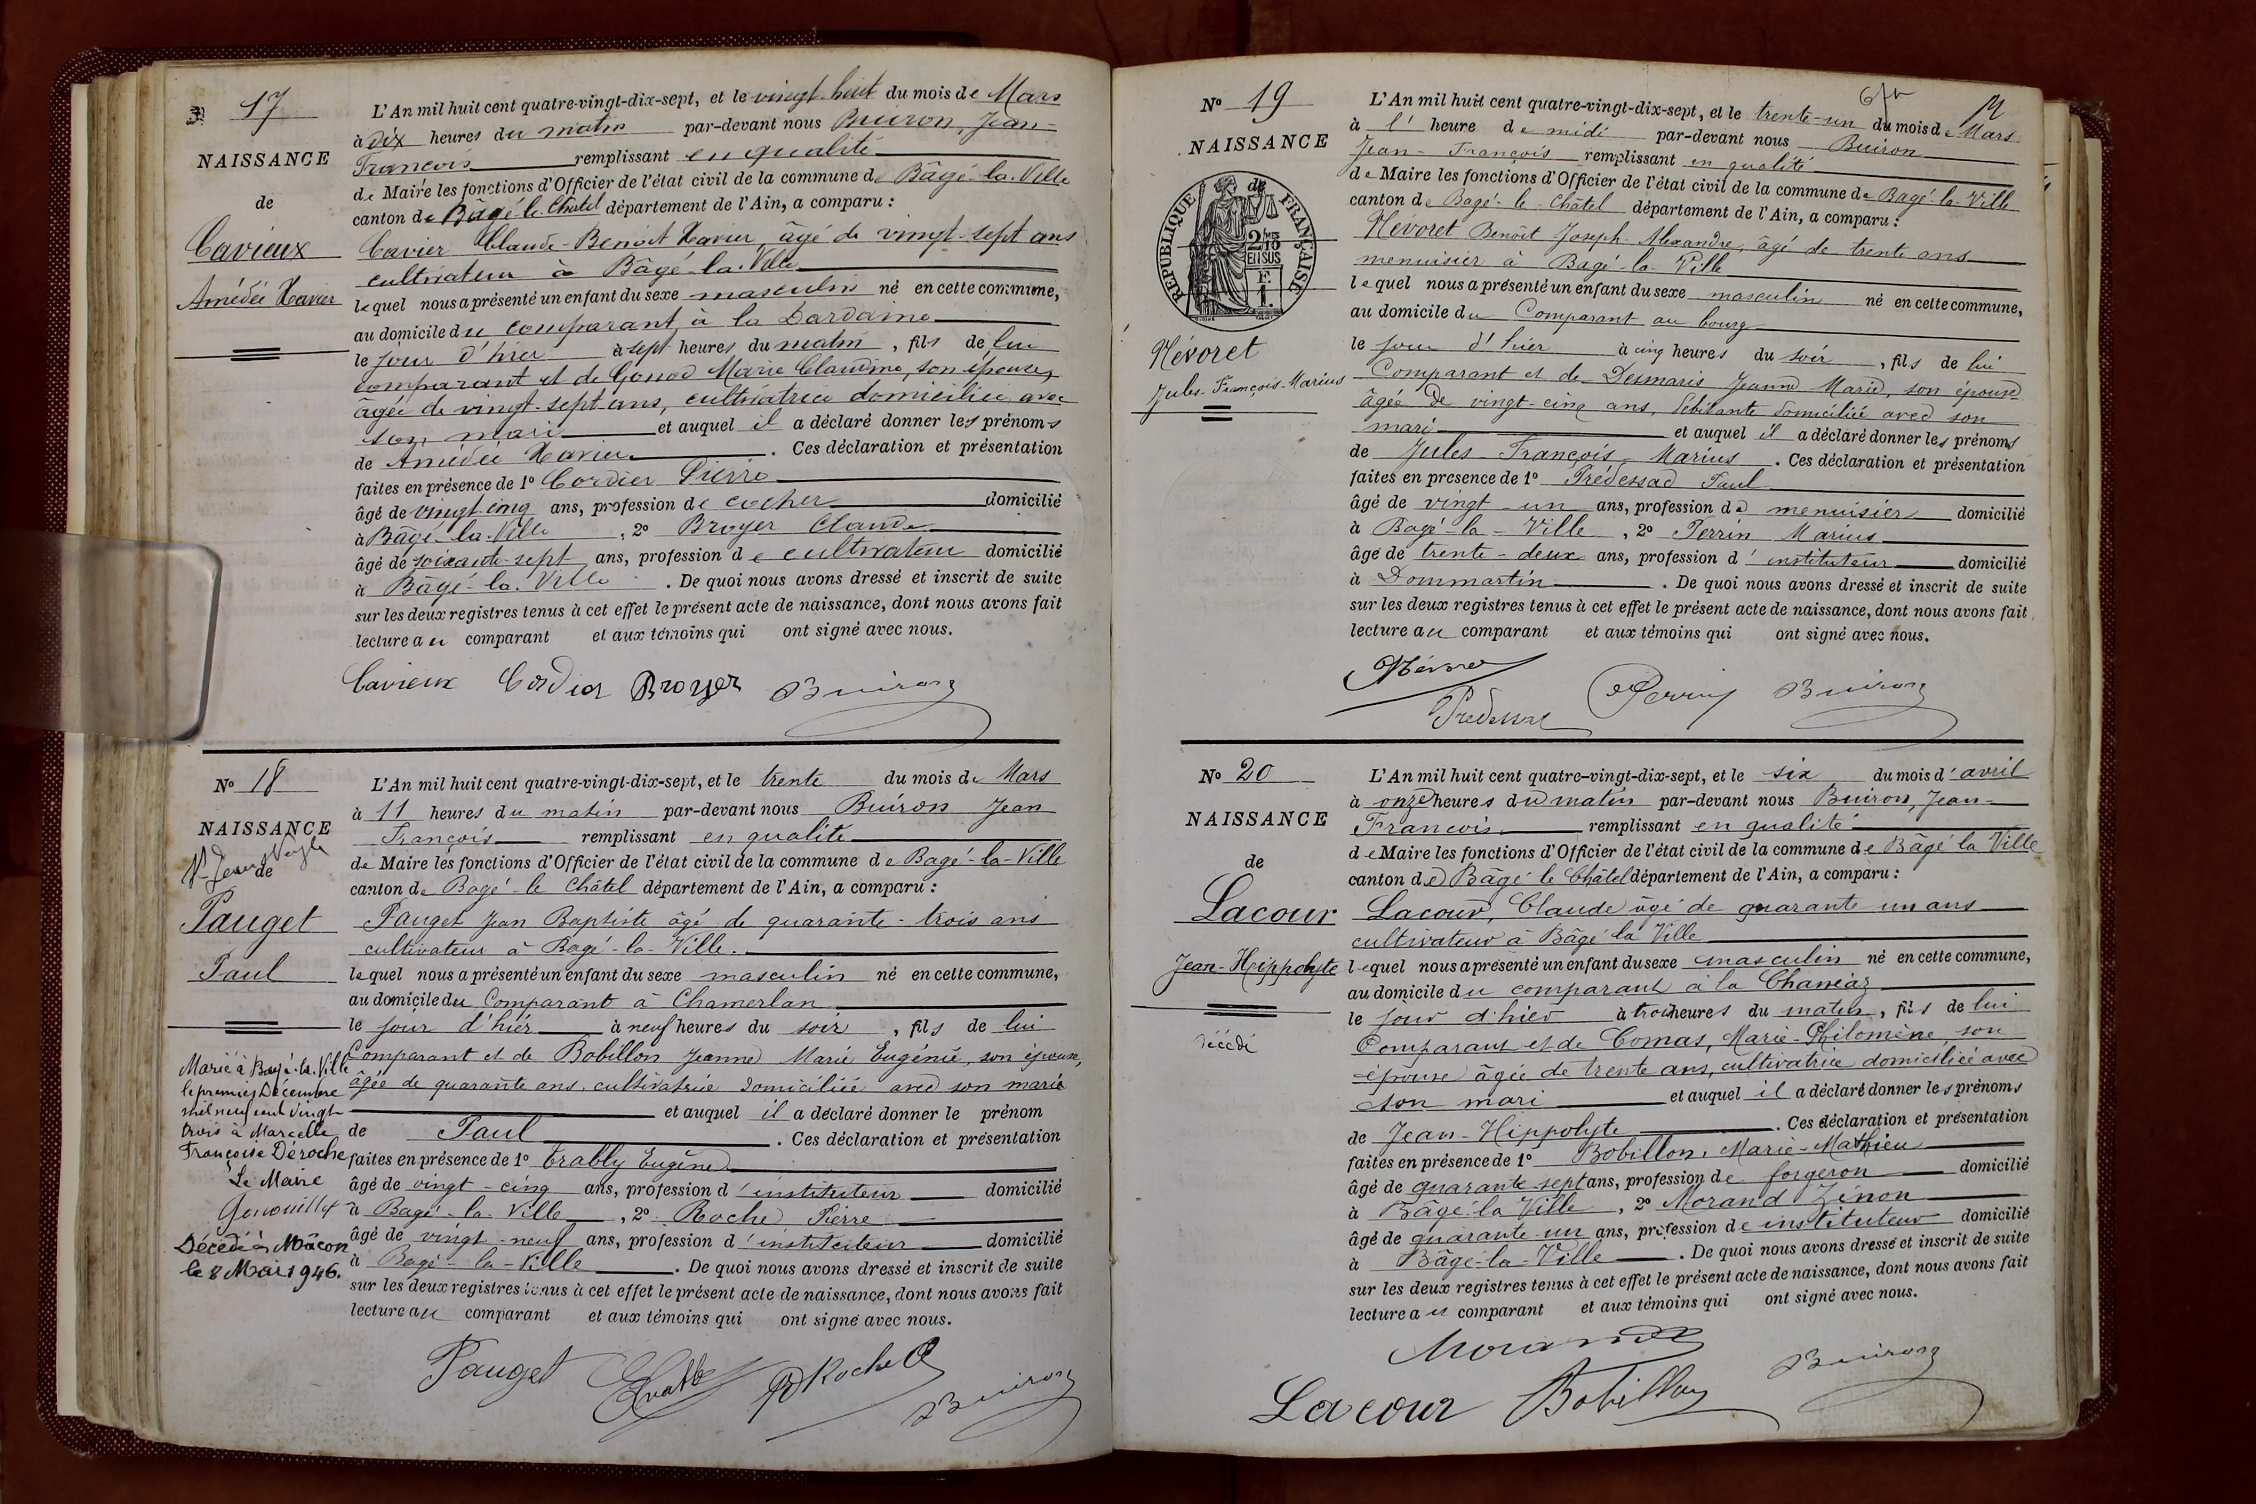 17
NAISSANCE
de
Cavieux
Amédée Xavier
L'An mil huit cent quatre-vingt-dix-sept, et le vingt-huit du mois de Mars
à dix heures du matin par-devant nous Buiron, Jean-
François remplissant en qualité
de Maire les fonctions d'Officier de l'état civil de la commune de Bâgé-la-Ville
canton de Bâgé-le-Châtel département de l'Ain, a comparu :
Cavier Claude-Benoit Xavier, âgé de vingt-sept ans
cultivateur à Bâgé-la-Ville
lequel nous a présenté un enfant du sexe masculin né en cette commune,
au domicile du comparant, à la Dardaine
le jour d'hier à sept heures du matin, fils de lui
comparant et de Gonod Marie Claudine, son épouse,
âgée de vingt-sept ans, cultivatrice domiciliée avec
son mari et auquel il a déclaré donner les prénoms
de Amédée Xavier. Ces déclaration et présentation
faites en présence de 1o Cordier Pierre
âgé de vingt cinq ans, profession de cocher domicilié
à Bâgé-la-Ville, 2o Broyer Claude
âgé de soixante-sept ans, profession de cultivateur domicilié
à Bâgé-la-Ville. De quoi nous avons dressé et inscrit de suite
sur les deux registres tenus à cet effet le présent acte de naissance, dont nous avons fait
lecture au comparant et aux témoins qui ont signé avec nous.
Cavieux Cordier Broyer Buiron
No 18
NAISSANCE
de
Pauget
Paul
Marié à Bagé-la-Ville
le premier Décembre
mil neuf cent vingt-
trois à Marcelle
Françoise Déroche
Le Maire
Genouillet
Décédé à Mâcon
le 8 Mai 1946.
L'An mil huit cent quatre-vingt-dix-sept, et le trente du mois de Mars
à 11 heures du matin par-devant nous Buiron Jean
François remplissant en qualité
de Maire les fonctions d'Officier de l'état civil de la commune de Bagé-la-Ville
canton de Bagé-le-Châtel département de l'Ain, a comparu :
Pauget Jean Baptiste âgé de quarante-trois ans
cultivateur à Bagé-la-Ville.
lequel nous a présenté un enfant du sexe masculin né en cette commune,
au domicile du Comparant à Chamerlan
le jour d'hier à neuf heures du soir, fils de lui
Comparant et de Bobillon Jeanne Marie Eugénie, son épouse,
âgée de quarante ans, cultivatrice domiciliée avec son marie
et auquel il a déclaré donner le prénom
de Paul. Ces déclaration et présentation
faites en présence de 1o Trably Eugène
âgé de vingt-cinq ans, profession d'instituteur domicilié
à Bagé-la-Ville, 2o Roche Pierre
âgé de vingt-neuf ans, profession d'instituteur domicilié
à Bagé-la-Ville. De quoi nous avons dressé et inscrit de suite
sur les deux registres tenus à cet effet le présent acte de naissance, dont nous avons fait
lecture au comparant et aux témoins qui ont signé avec nous.
Pauget PRoche Buiron
No 19
NAISSANCE
de
RÉPUBLIQUE FRANÇAISE
2/10 EN SUS
F. 1.
Névoret
Jules-François-Marius
L'An mil huit cent quatre-vingt-dix-sept, et le trente-un du mois de Mars
à l' heure de midi par-devant nous Buiron
Jean-François remplissant en qualité
de Maire les fonctions d'Officier de l'état civil de la commune de Bagé-la-Ville
canton de Bagé-le-Châtel département de l'Ain, a comparu :
Névoret Benoît Joseph-Alexandre, âgé de trente ans
menuisier à Bagé-la-Ville
lequel nous a présenté un enfant du sexe masculin né en cette commune,
au domicile du Comparant au bourg
le jour d'hier à cinq heures du soir, fils de lui
Comparant et de Desmaris Jeanne Marie, son épouse
âgée de vingt-cinq ans, débitante domiciliée avec son
mari et auquel il a déclaré donner les prénoms
de Jules-François-Marius. Ces déclaration et présentation
faites en présence de 1o Prédessac Paul
âgé de vingt-un ans, profession de menuisier domicilié
à Bagé-la-Ville, 2o Perrin Marius
âgé de trente-deux ans, profession d'instituteur domicilié
à Dommartin. De quoi nous avons dressé et inscrit de suite
sur les deux registres tenus à cet effet le présent acte de naissance, dont nous avons fait
lecture au comparant et aux témoins qui ont signé avec nous.
Névoret Perrin Buiron
Predessac
No 20
NAISSANCE
de
Lacour
Jean-Hippolyte
décédé
L'An mil huit cent quatre-vingt-dix-sept, et le six du mois d'avril
à onze heures du matin par-devant nous Buiron, Jean-
François remplissant en qualité
de Maire les fonctions d'Officier de l'état civil de la commune de Bâgé la Ville
canton de Bâgé le Châtel département de l'Ain, a comparu :
Lacour, Claude âgé de quarante un ans
cultivateur à Bâgé la Ville
lequel nous a présenté un enfant du sexe masculin né en cette commune,
au domicile du comparant à la Chanéaz
le jour d'hier à trois heures du matin, fils de lui
Comparant et de Comas, Marie-Philomène son
épouse âgée de trente ans, cultivatrice domiciliée avec
son mari et auquel il a déclaré donner les prénoms
de Jean-Hippolyte. Ces déclaration et présentation
faites en présence de 1o Bobillon, Marie-Mathieu
âgé de quarante-sept ans, profession de forgeron domicilié
à Bâgé-la Ville, 2o Morand Zénon
âgé de quarante-un ans, profession de instituteur domicilié
à Bâgé-la-Ville. De quoi nous avons dressé et inscrit de suite
sur les deux registres tenus à cet effet le présent acte de naissance, dont nous avons fait
lecture au comparant et aux témoins qui ont signé avec nous.
Morand Buiron
Lacour Bobillon